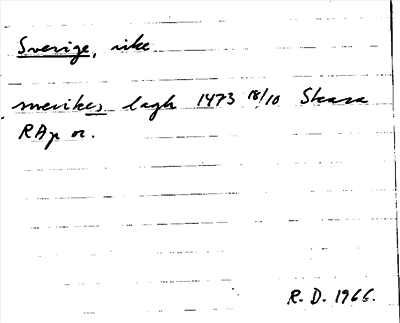 Sverige, rike
swerikes lagh 1473 18/10 Skara
RAp or.
R. D. 1966.